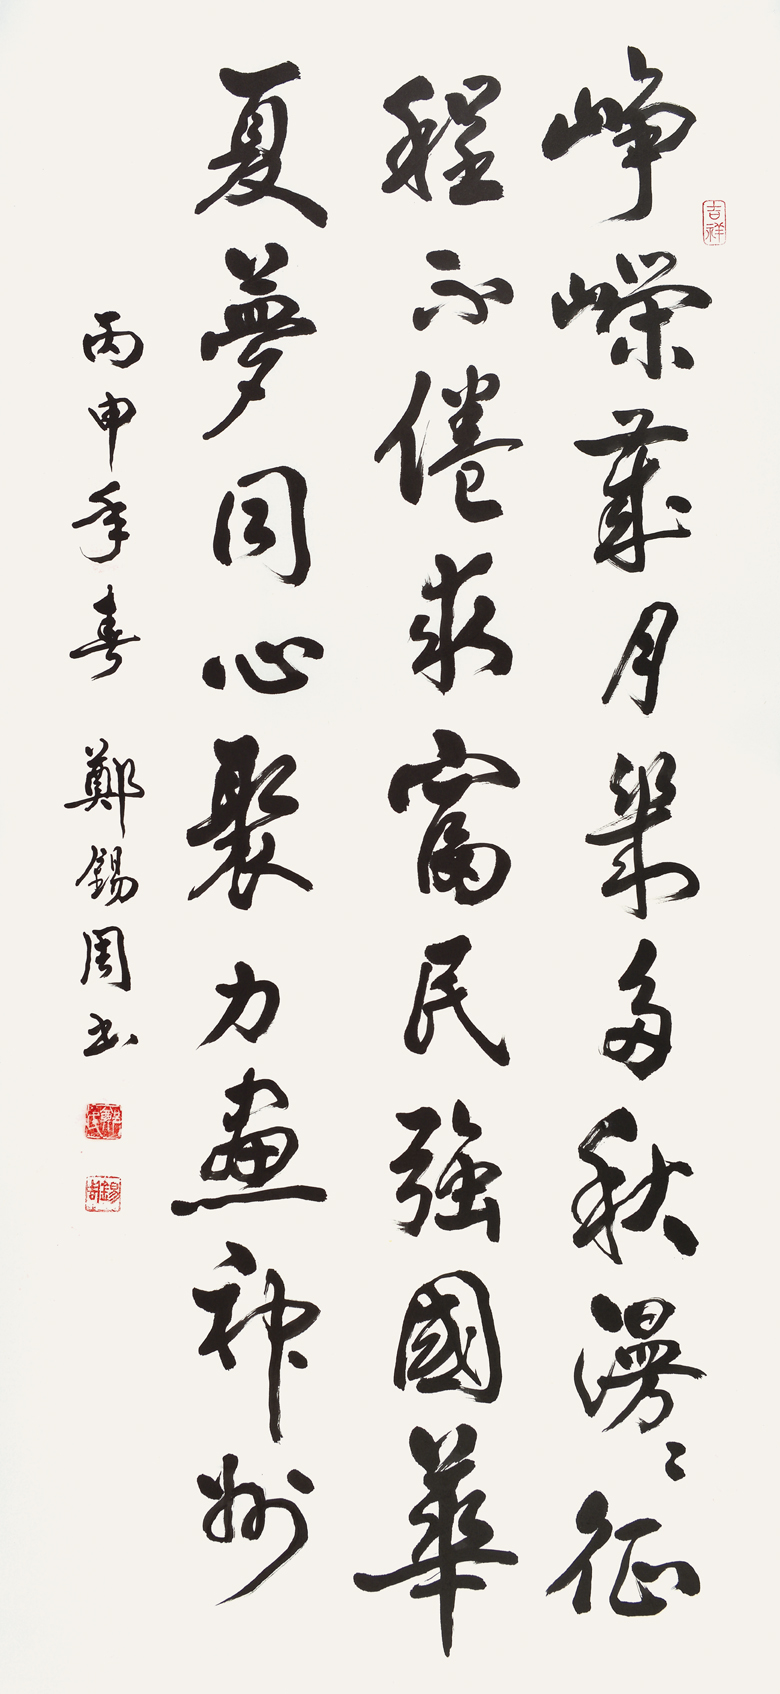 吉祥
崢嶸歲月幾多秋漫〻征
程不倦求富民強國華
夏夢同心聚力畫神州
丙申年春 鄭錫周書
錫周